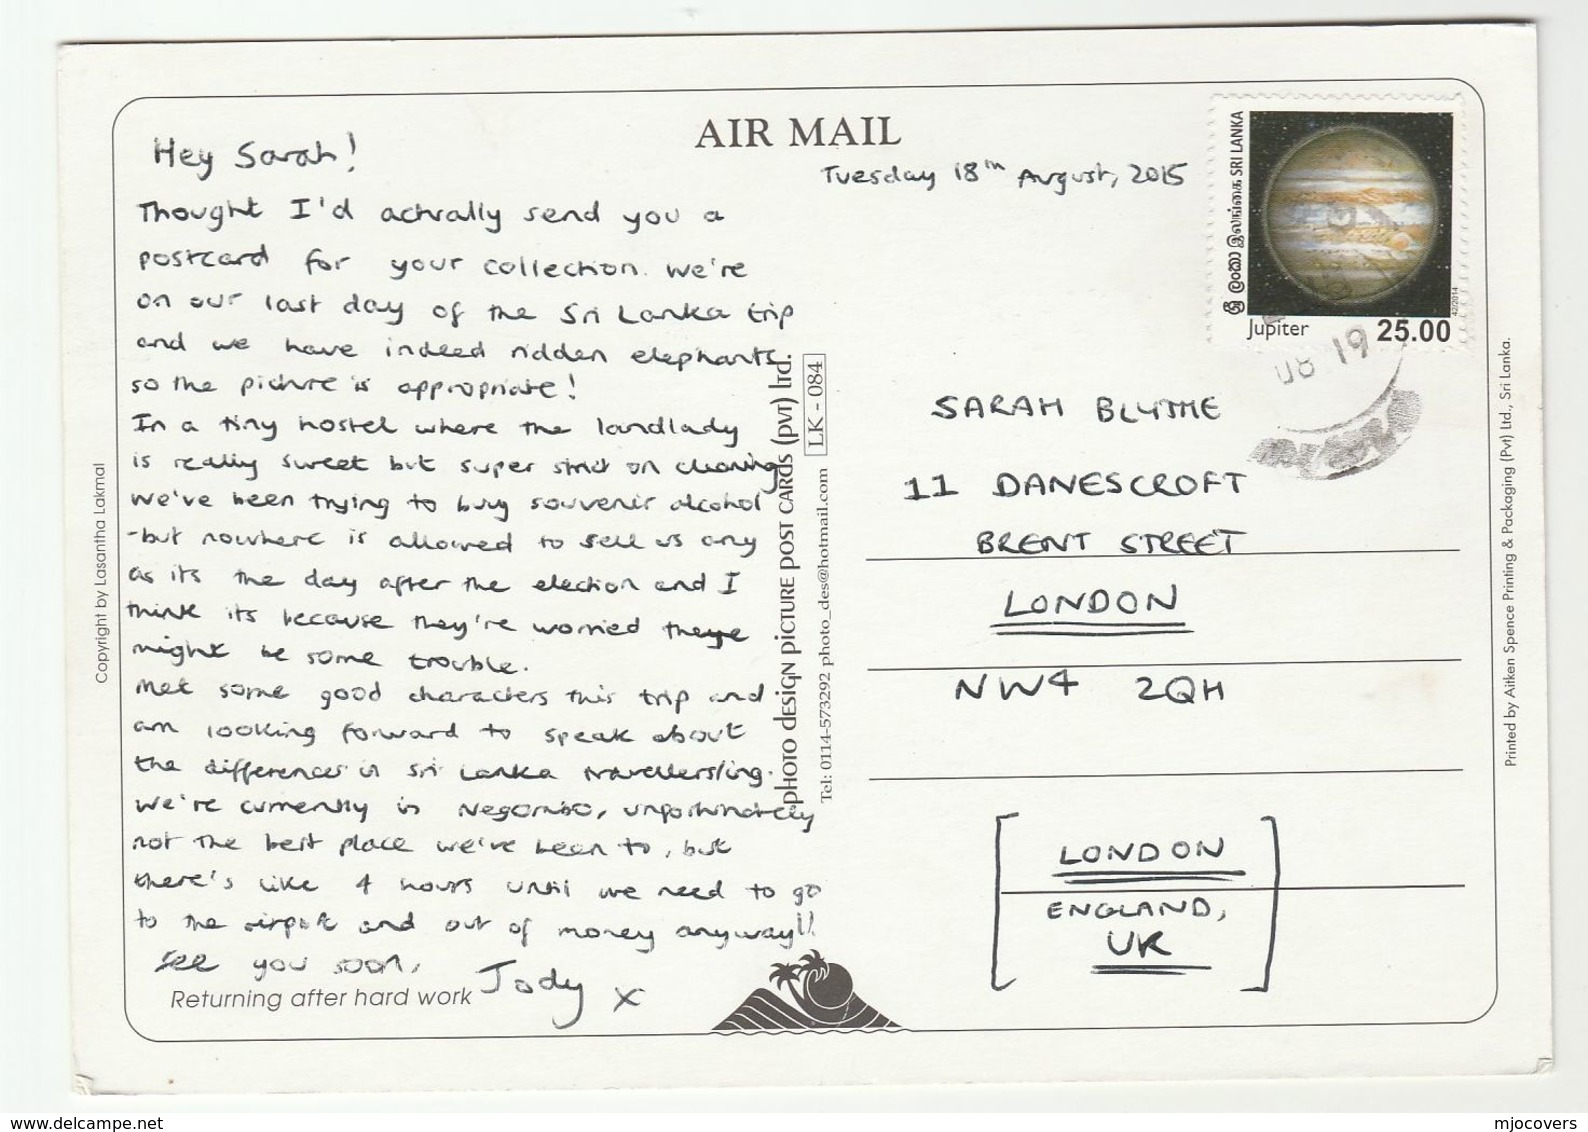 AIR MAIL
Tuesday 18th August, 2015
Hey Sarah!
Thought I'd actually send you a
postcard for your collection. We're
on our last day of the Sri Lanka trip
and we have indeed ridden elephants
so the picture is appropriate!
In a tiny hostel where the landlady
is really sweet but super strict on cleaning
We've been trying to buy souvenir alcohol
-but nowhere is allowed to sell us any
as its the day after the election and I
think its because they're worried there
might be some trouble.
Met some good characters this trip and
am looking forward to speak about
the differences in Sri Lanka travellers/ing.
We're currently in Negombo, unfortunately
not the best place we've been to, but
there's like 4 hours until we need to go
to the airport and out of money anyway!!
See you soon,
Jody x
Returning after hard work
Copyright by Lasantha Lakmal
PHOTO DESIGN PICTURE POST CARDS (PVT) LTD.
Tel: 0114-573292 photo_des@hotmail.com
LK - 084
ශ්‍රී ලංකා இலங்கை SRI LANKA
42/2014
Jupiter 25.00
08 19
SARAH BLYTHE
11 DANESCROFT
BRENT STREET
LONDON
NW4 2QH
[LONDON
ENGLAND,
UK]
Printed by Aitken Spence Printing & Packaging (Pvt) Ltd., Sri Lanka.
www.delcampe.net
mjocovers